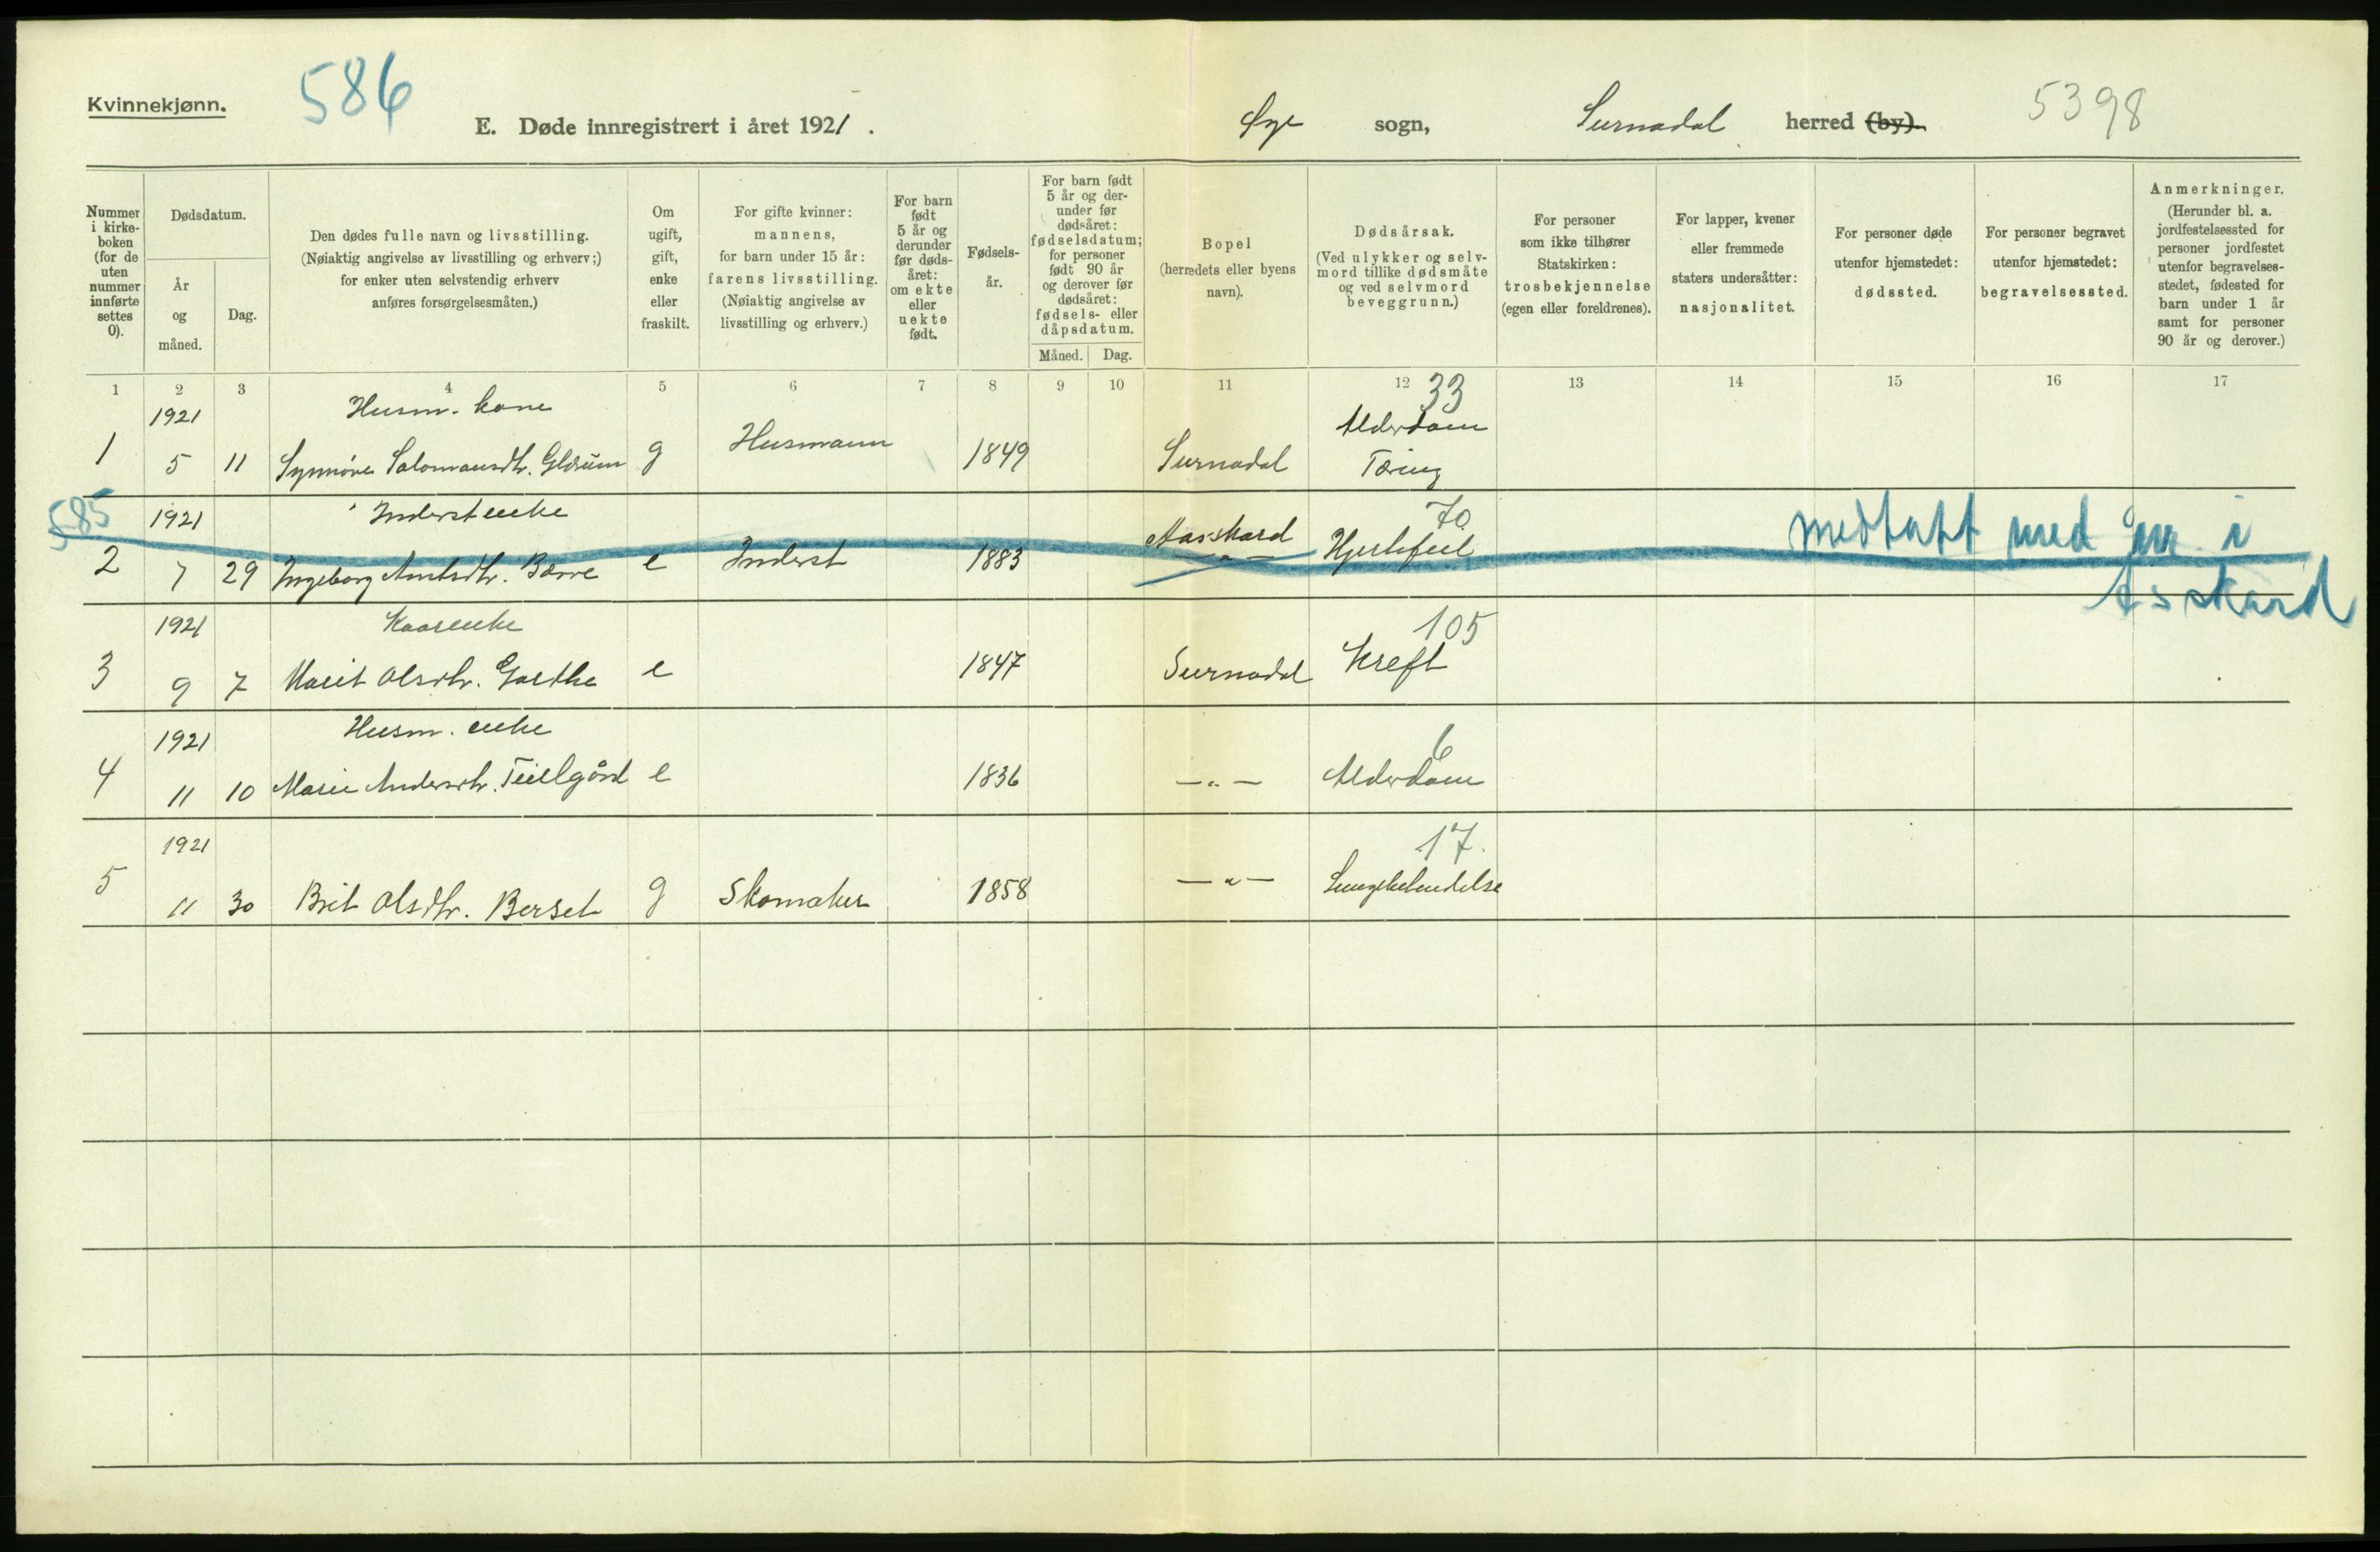 Kvinnekjønn.
586
E. Døde innregistrert i året 1921.
Øye sogn,
Surnadal herred (by).
5398
Nummer i kirkeboken (for de uten nummer innførte settes 0).
Dødsdatum.
År og måned.
Dag.
Den dødes fulle navn og livsstilling.
(Nøiaktig angivelse av livsstilling og erhverv;)
for enker uten selvstendig erhverv
anføres forsørgelsesmåten.)
Om ugift, gift, enke eller fraskilt.
For gifte kvinner:
mannens,
for barn under 15 år:
farens livsstilling.
(Nøiaktig angivelse av
livsstilling og erhverv.)
For barn født 5 år og derunder før dødsåret: om ekte eller uekte født.
Fødselsår.
For barn født 5 år og derunder før dødsåret: fødselsdatum; for personer født 90 år og derover før dødsåret: fødsels- eller dåpsdatum.
Måned.
Dag.
Bopel
(herredets eller byens
navn).
Dødsårsak.
(Ved ulykker og selvmord tillike dødsmåte og ved selvmord beveggrunn.)
For personer
som ikke tilhører
Statskirken:
trosbekjennelse
(egen eller foreldrenes).
For lapper, kvener
eller fremmede
staters undersåtter:
nasjonalitet.
For personer døde
utenfor hjemstedet:
dødssted.
For personer begravet
utenfor hjemstedet:
begravelsessted.
Anmerkninger.
(Herunder bl. a. jordfestelsessted for personer jordfestet utenfor begravelsesstedet, fødested for barn under 1 år samt for personer 90 år og derover.)
1 2 3 4 5 6 7 8 9 10 11 12 13 14 15 16 17
1921 Husm. kone 33
1 5 11 Synnøve Salomonsdtr. g Husmann 1849 Surnadal Alderdom
Tæring
585 1921 Inderstenke 70
2 7 29 Ingeborg e Inderst 1883 Aasskard Hjertefeil
medtatt med nr. i
Asskard
1921 Kaarenke 105
3 9 7 Marit Olsdtr. e 1847 Surnadal Kreft
1921 Husm. enke 6
4 11 10 Marie Andersdtr. e 1836 — " — Alderdom
1921 17.
5 11 30 Brit Olsdtr. Berset g Skomaker 1858 — " — Lungebetendelse